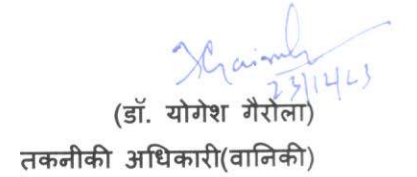 23/12/23
(डॉ. योगेश गैरोला)
तकनीकी अधिकारी(वानिकी)